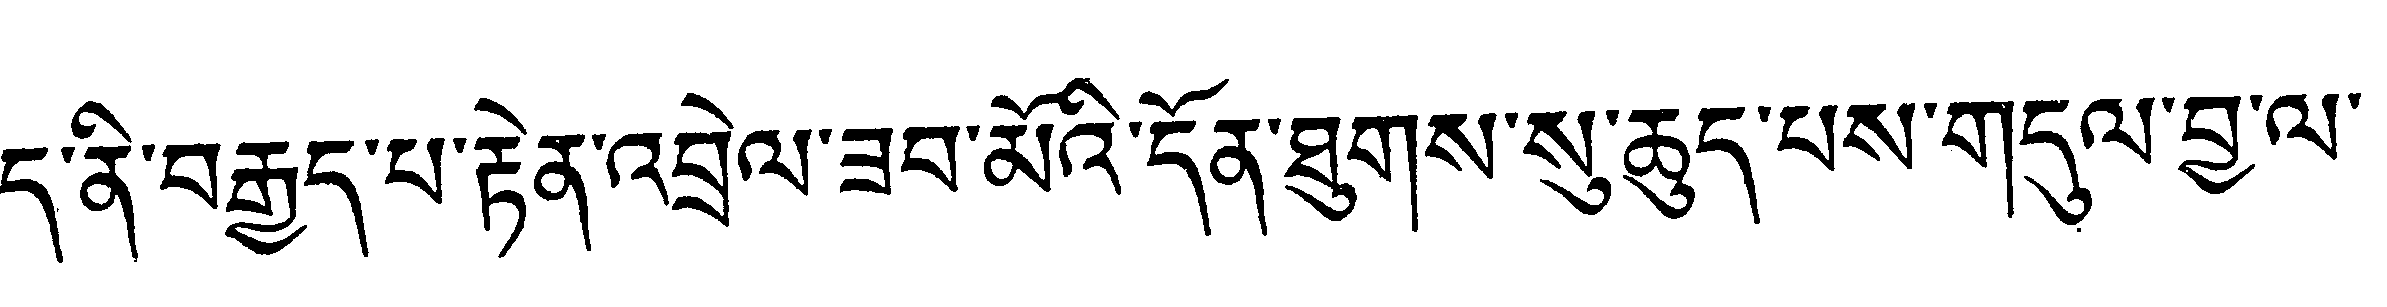 ད་ནི་བརྒྱད་པ་རྟེན་འབྲེལ་ཟབ་མོའི་དོན་ཐུགས་སུ་ཆུད་པས་གདུལ་བྱ་ལ་